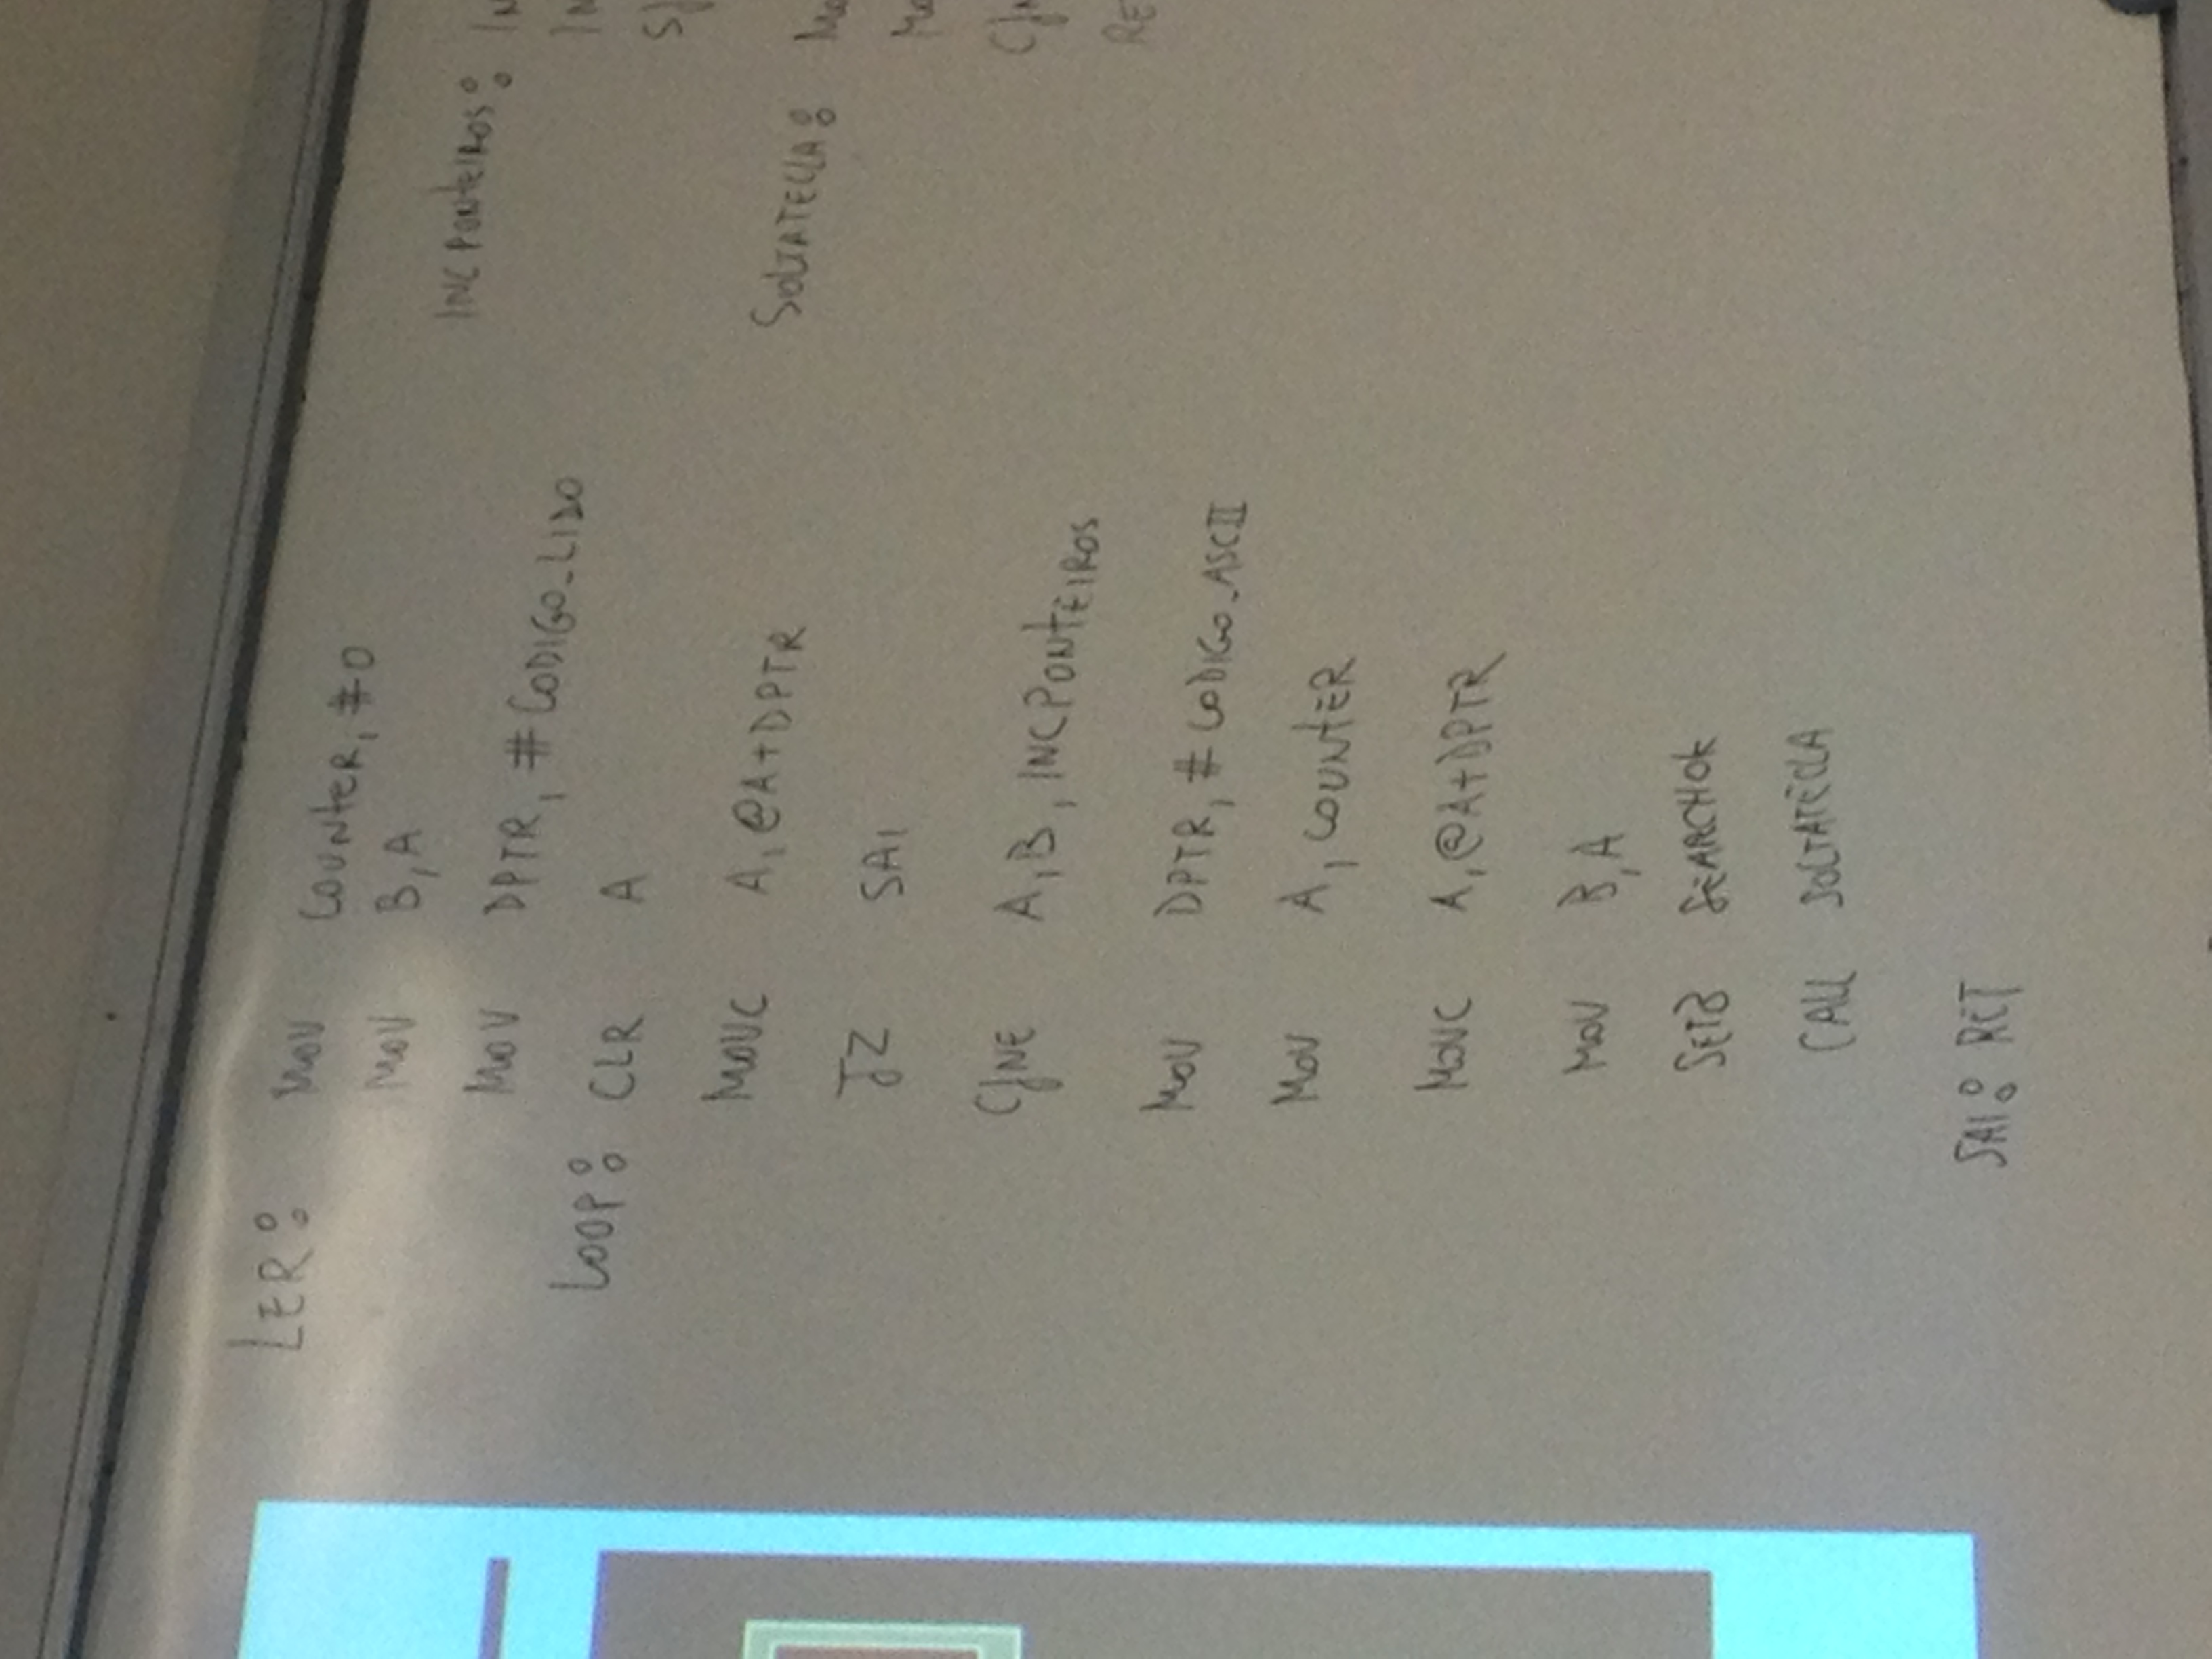 LER: MOV COUNTER, #0
MOV B, A
MOV DPTR, #CODIGO_LIDO
LOOP: CLR A
MOVC A, @A+DPTR
JZ SAI
CJNE A, B, INCPONTEIROS
MOV DPTR, #CODIGO_ASCII
MOV A, COUNTER
MOVC A, @A+DPTR
MOV B, A
SETB SEARCHOK
CALL SOLTATECLA
SAI: RET
INCPONTEIROS: IN
IN
SJ
SOLTATECLA: MO
MO
CJN
RE